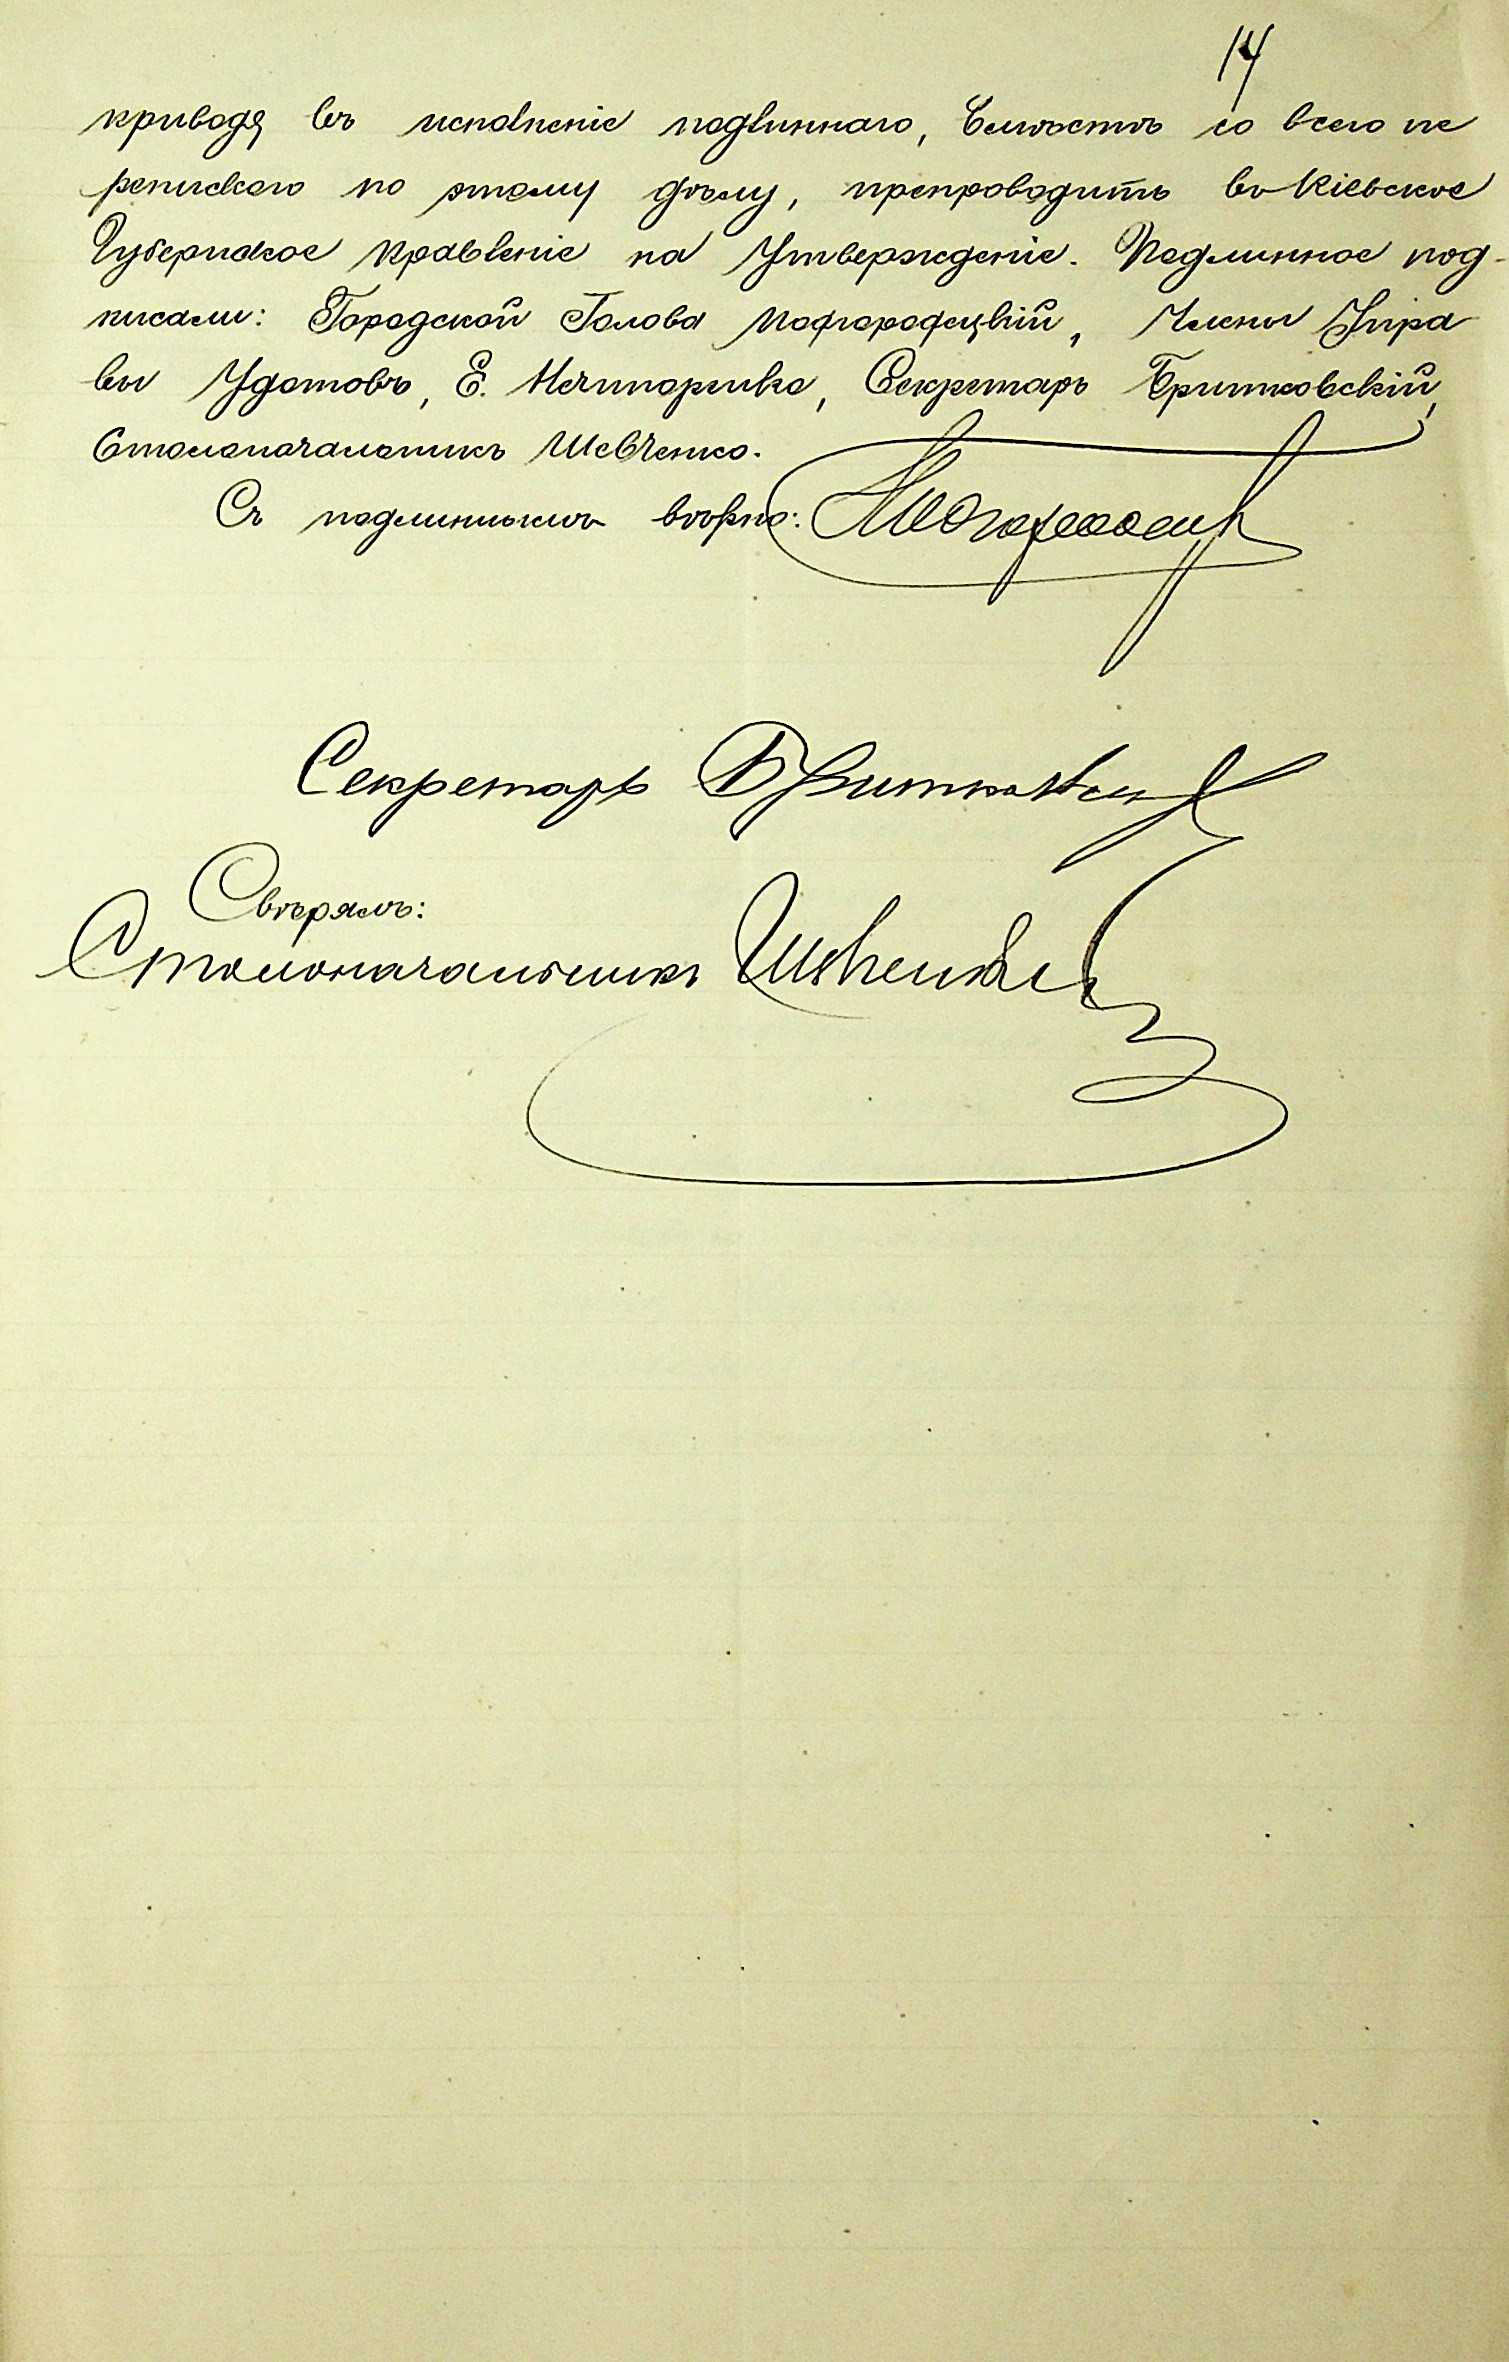 14
приводя въ исполненіе подлиннаго, вмѣстѣ со всею пе
репискою по этому дѣлу, препроводить въ Кіевское
Губернское Правленіе на Утвержденіе. Подлинное под-
писали: Городской Голова Могородецкій, Члены Упра
вы Удотовъ, Е. Нечипоренко, Секретарь Бритковскій,
Столоначальникъ Шевченко.
Съ подлиннымъ вѣрно:
Секретарь Бритковскій
Свѣрялъ:
Столоначальникъ Шевченко